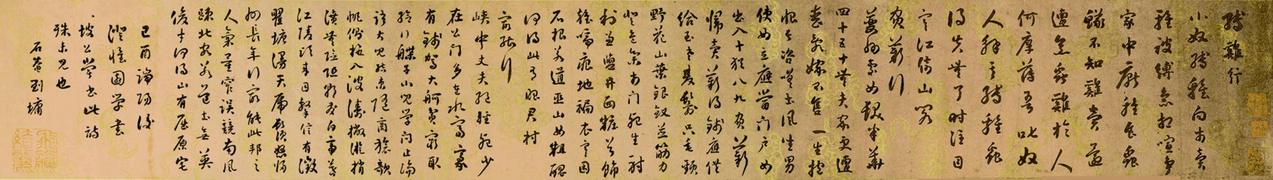 縛雞行
小奴縛雞向市賣
雞被縛急相喧爭
家中厭雞食蟲
蟻不知雞賣還
遭烹蟲雞於人
何厚薄吾叱奴
人解其縛雞蟲
得失無了時注目
寒江倚山閣
負薪行
夔州處女髮半華
四十五十無夫家更遭
喪亂嫁不售一生抱
恨堪咨嗟土風坐男
使女立應當門戶女
出入十猶八九負薪
歸賣薪得錢應供
給至老雙鬟只垂頸
野花山葉銀釵並筋力
登危集市門死生射
利兼鹽井面粧首飾
雜啼痕地褊衣寒困
石根若道巫山女粗醜
何得此有昭君村
最能行
峽中丈夫絕輕死少
在公門多在水富豪
有錢駕大舸貧窮取
給行艓子小兒學問止論
語大兒結束隨商旅欹
帆側柁入波濤撇漩捎
濆無險阻朝發白帝暮
江陵頃來目擊信有徵
瞿塘漫天虎鬚怒歸
州長年行最能此鄉之
人氣量窄誤競南風
疎北客若道士無英
俊才何得山有屈原宅
己酉端陽後
澄懷園書
坡公嘗書此詩
殊未見也
石菴劉墉